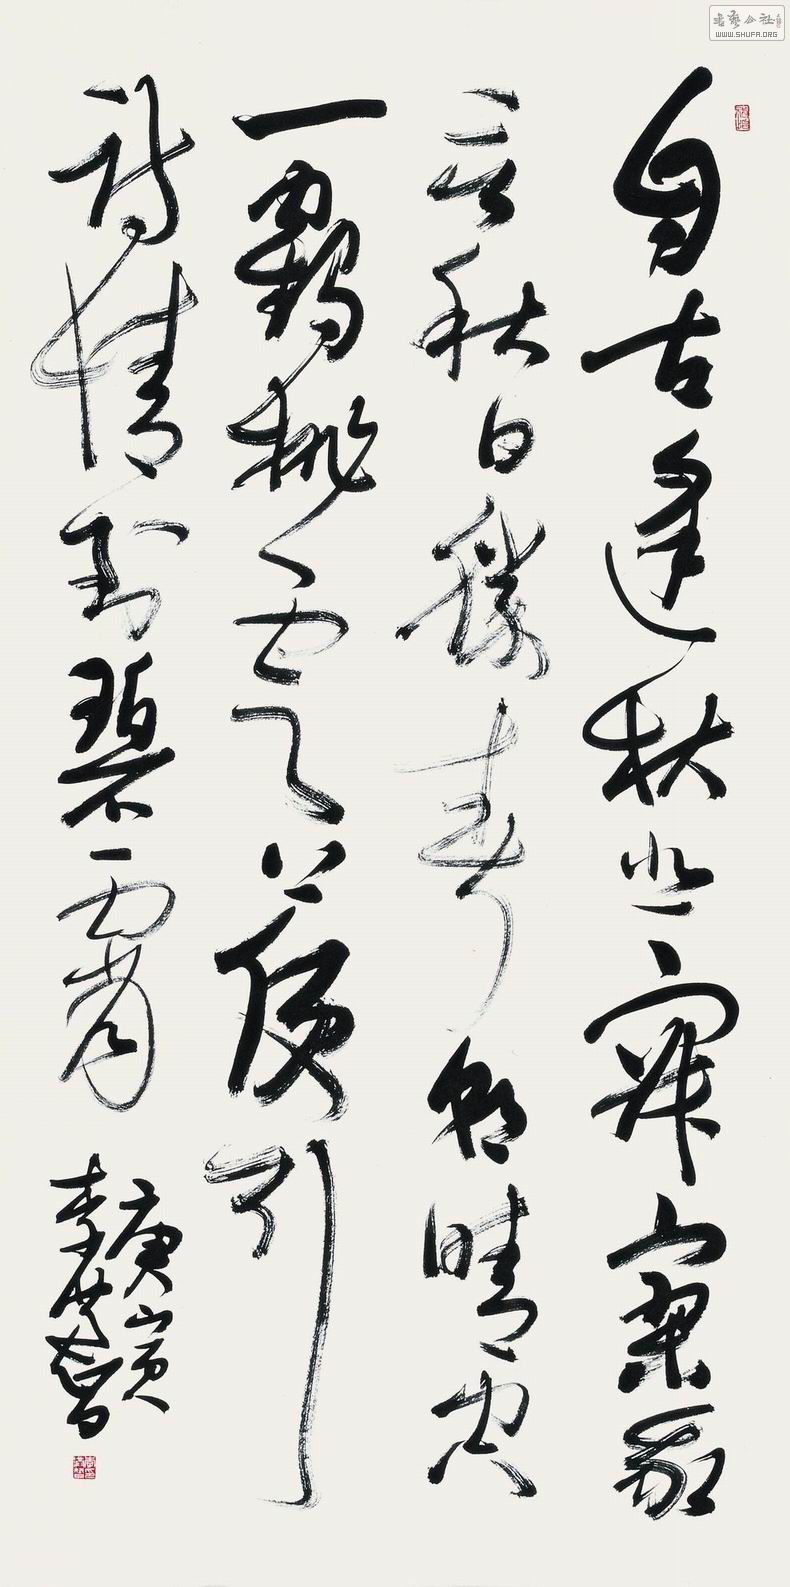 書藝公社
WWW.SHUFA.ORG
自古逢秋悲寂寥我
言秋日勝春朝晴空
一鶴排雲上便引
詩情到碧霄
庚寅